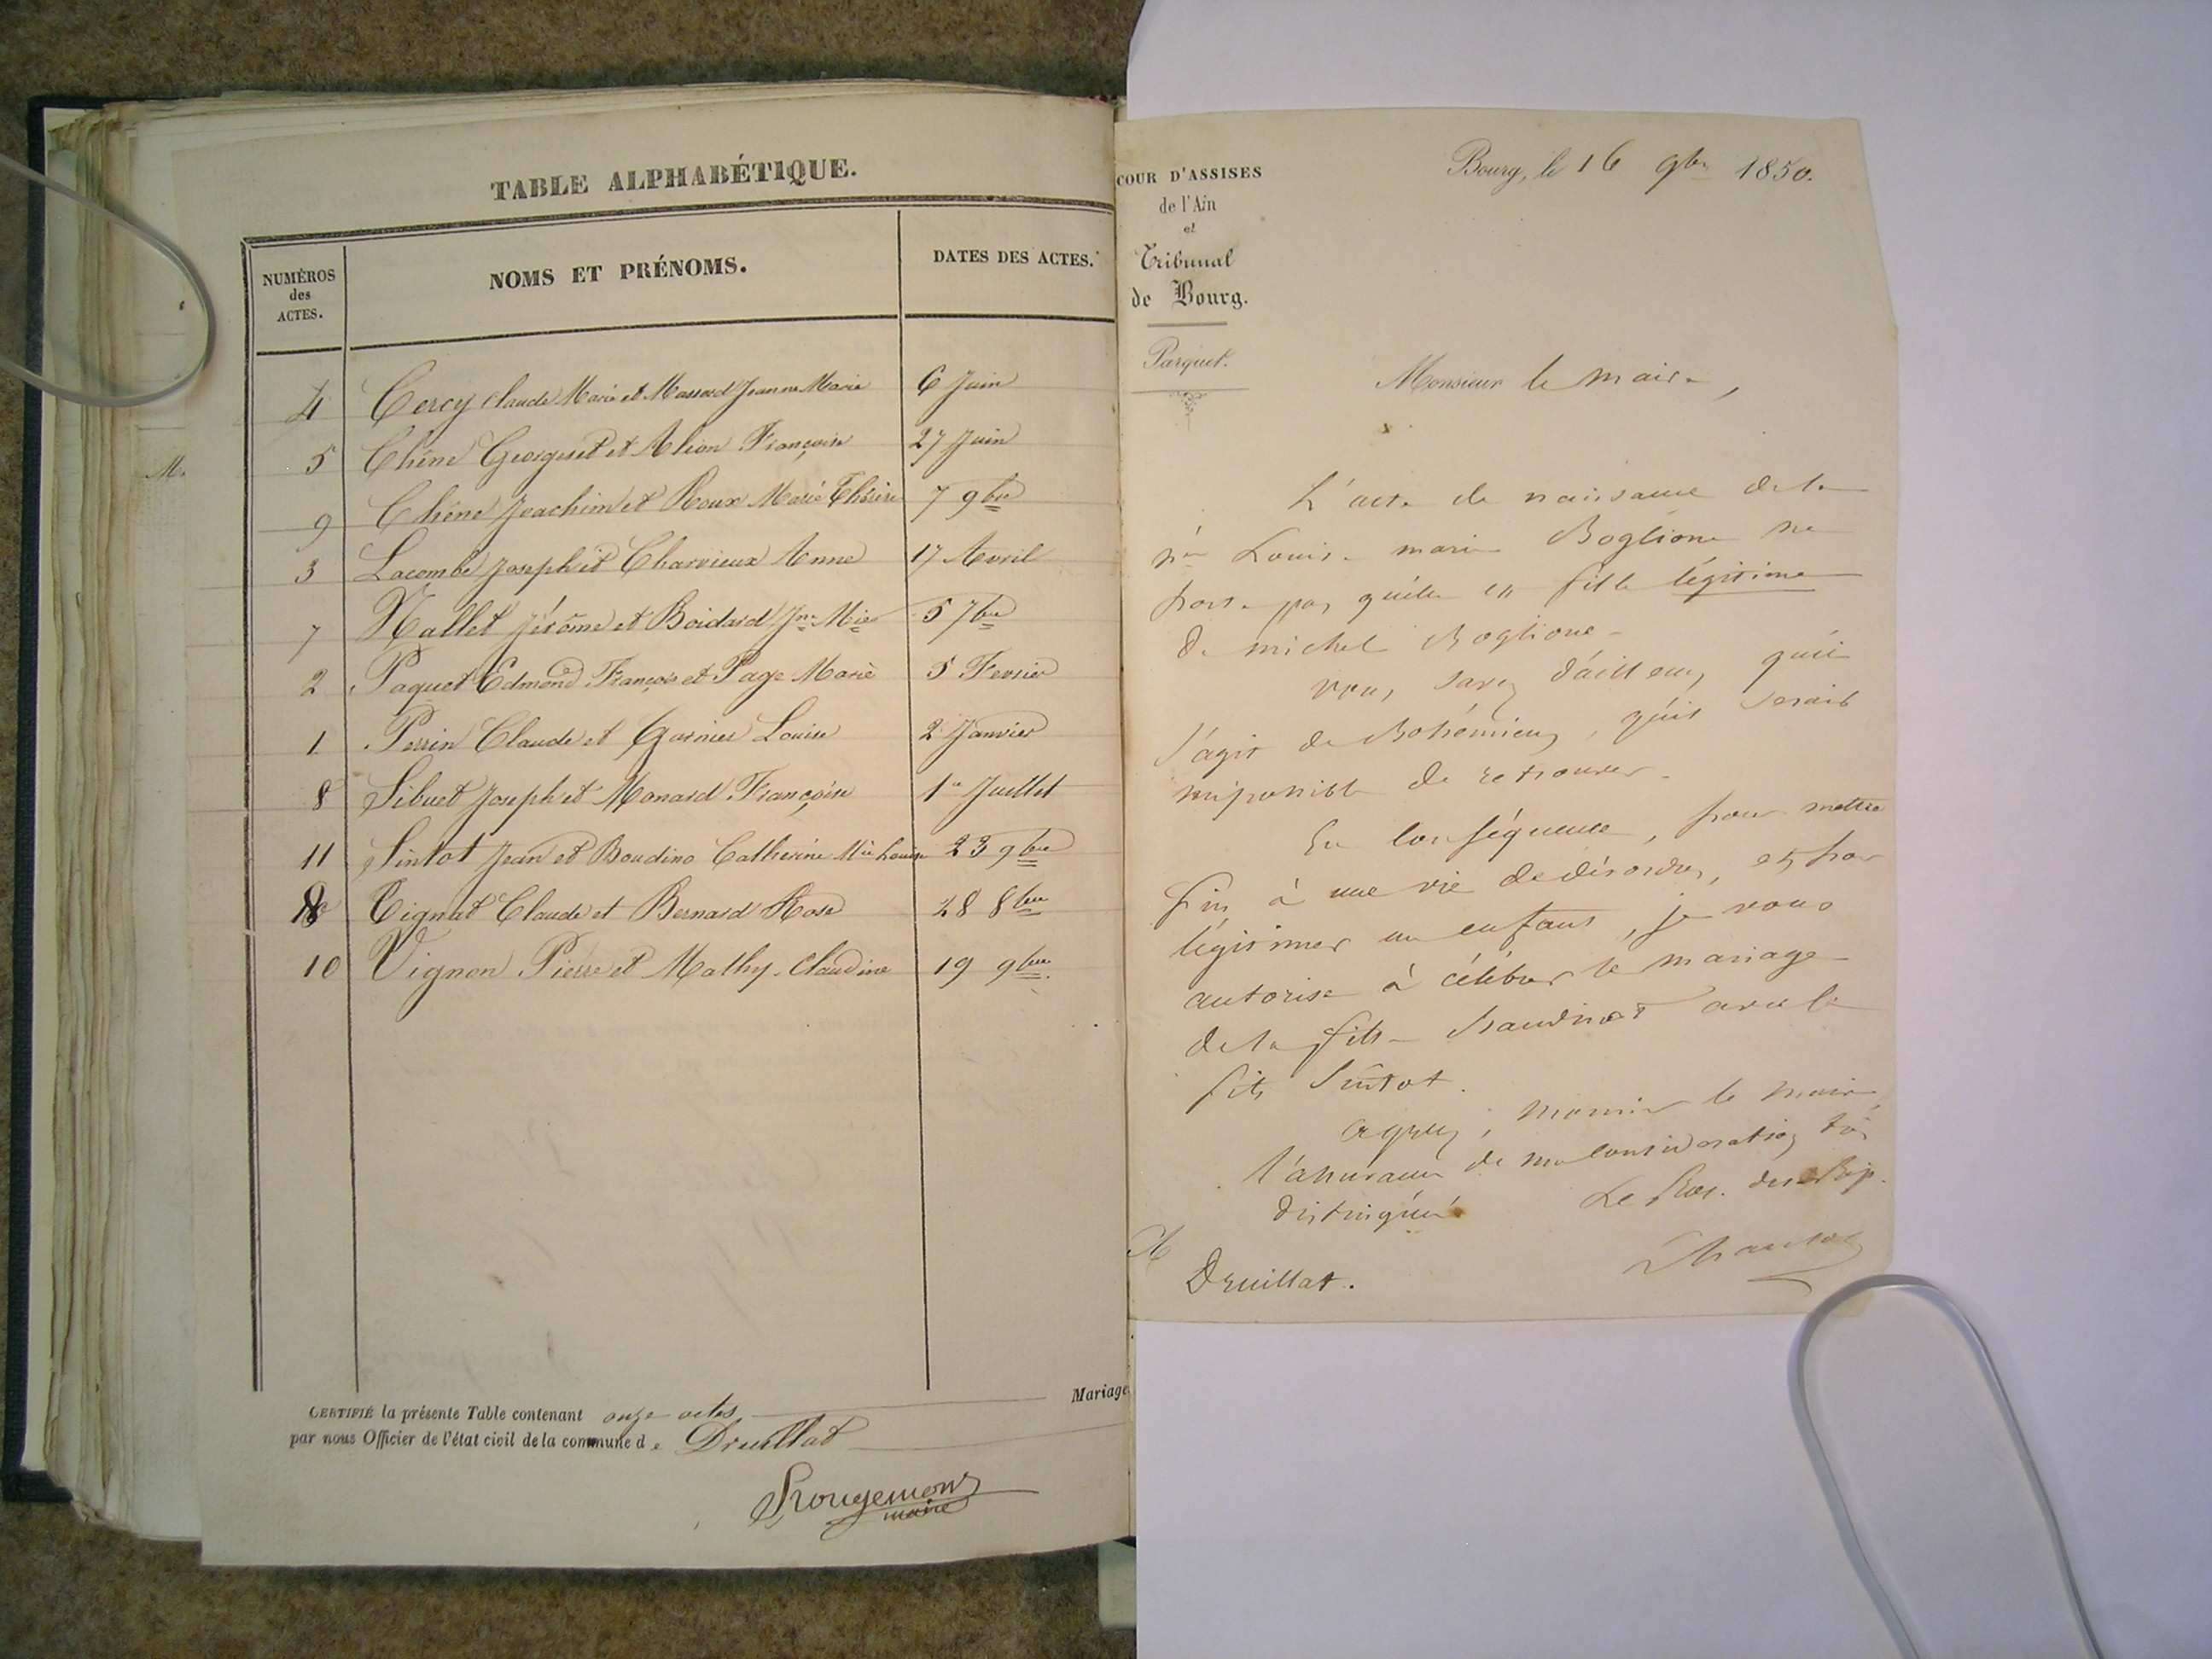 TABLE ALPHABÉTIQUE.
NUMÉROS des ACTES.
NOMS ET PRÉNOMS.
DATES DES ACTES.
M.
4 Cercy Claude Marie et Massard Jeanne Marie 6 Juin
5 Chêne Georges et et Alion Françoise 27 Juin
9 Chêne Joachim et Roux Marie Thérèse 7 9bre
3 Lacombe Joseph et Charvieux Anne 17 Avril
7 Nallet Jérôme et Boidard Jne Mie 5 7bre
2 Paquet Edmond François et Page Marie 5 Fevrier
1 Perrin Claude et Garnier Louise 2 Janvier
8 Sibuet Joseph et Monard Françoise 1er Juillet
11 Sintot Jean et Boudino Catherine Mie Louise 23 9bre
8 Tignat Claude et Bernard Rose 28 8bre
10 Vignon Pierre et Mathy Claudine 19 9bre.
Mariage
CERTIFIÉ la présente Table contenant onze actes
par nous Officier de l'état civil de la commune de Druillat
Rougemont
maire
COUR D'ASSISES
de l'Ain
et
Tribunal
de Bourg.
Parquet.
Bourg, le 16 9bre 1850.
Monsieur le maire,
L'acte de naissance de la
née Louise marie Boglione ne
porte pas qu'elle est fille légitime
de michel Boglione
vous savez d'ailleurs qu'il
s'agit de Bohémiens, qu'il serait
impossible de retrouver.
En conséquence, pour mettre
fin à une vie de désordres, et pour
légitimer un enfant, je vous
autorise à célébrer le mariage
de la fille Baudinot avec le
fils Sintot.
agréez, monsieur le maire,
l'assurance de ma considération très
distinguée
Le Proc. de la Rép.
Druillat.